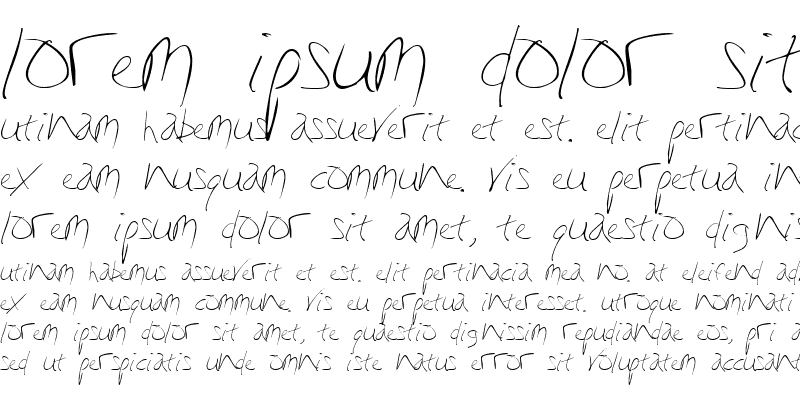 lorem ipsum dolor sit
utinam habemus assueverit et est. elit pertinac
ex eam nusquam commune. vis eu perpetua in
lorem ipsum dolor sit amet, te quaestio dignis
utinam habemus assueverit et est. elit pertinacia mea no. at eleifend ad
ex eam nusquam commune. vis eu perpetua interesset. utroque nominati
lorem ipsum dolor sit amet, te quaestio dignissim repudiandae eos, pri a
sed ut perspiciatis unde omnis iste natus error sit voluptatem accusant